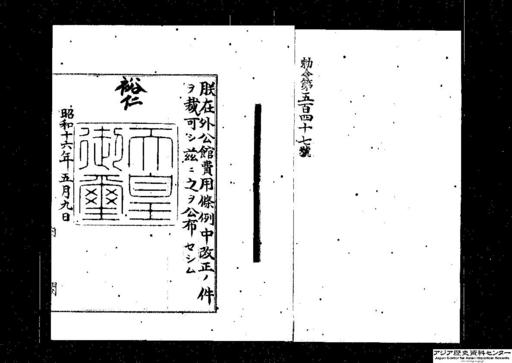 勅令第五百四十七號
朕在外公館費用條例中改正ノ件
ヲ裁可シ玆ニ之ヲ公布セシム
裕仁
天皇
御璽
昭和十六年五月九日
内
閣
アジア歴史資料センター
Japan Center for Asian Historical Records